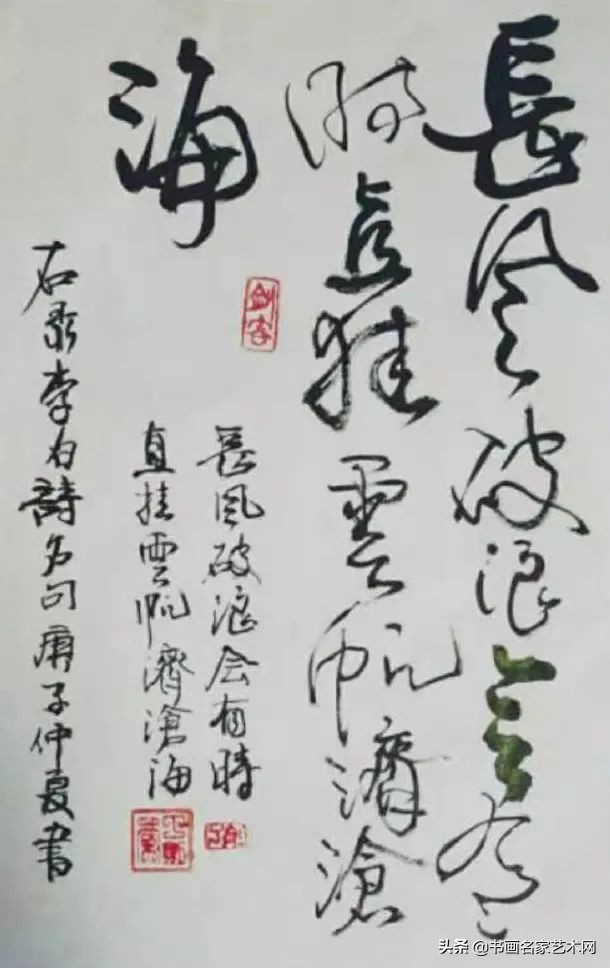 長風破浪会有
時直挂雲帆濟滄
海
剑客
長風破浪会有時
直挂雲帆濟滄海
右录李白詩名句庚子仲夏書
头条 @书画名家艺术网